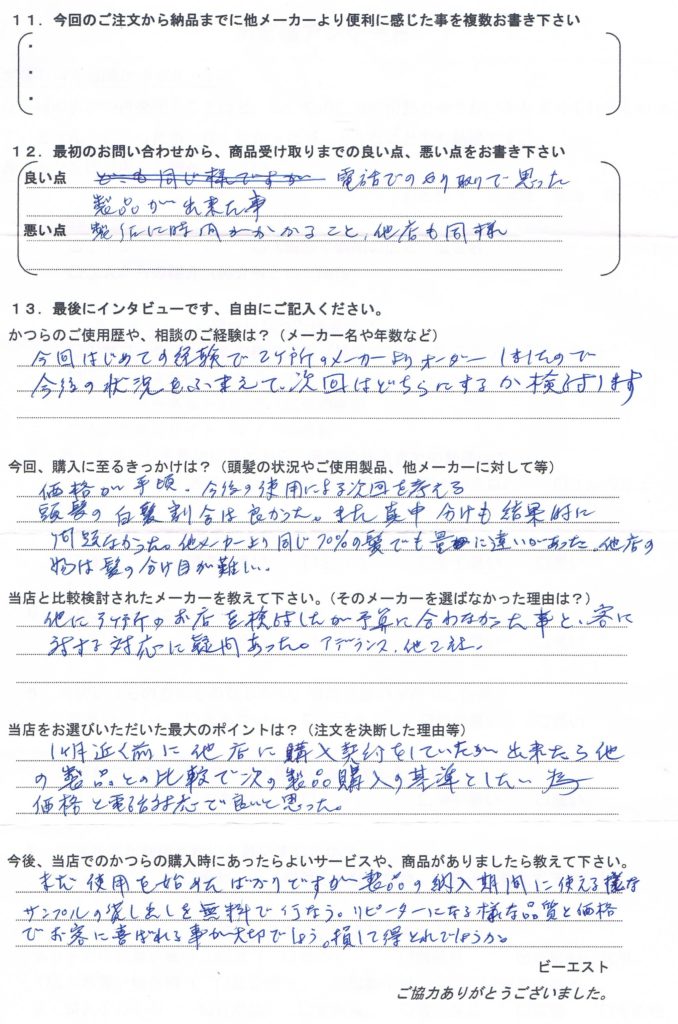 11．今回のご注文から納品までに他メーカーより便利に感じた事を複数お書き下さい
・
・
・
12．最初のお問い合わせから、商品受け取りまでの良い点、悪い点をお書き下さい
良い点 どこも同じ様ですが 電話でのやり取りで思った
製品が出来た事
悪い点 製作に時間がかかること、他店も同様
13．最後にインタビューです、自由にご記入ください。
かつらのご使用歴や、相談のご経験は？（メーカー名や年数など）
今回はじめての経験で2ヶ所のメーカーよりオーダーしましたので
今後の状況をふまえて、次回はどちらにするか検討します
今回、購入に至るきっかけは？（頭髪の状況やご使用製品、他メーカーに対して等）
価格が手頃、今後の使用による次回を考える
頭髪の白髪割合は良かった。また真中分けも結果的に
問題なかった。他メーカーより同じ70%の髪でも量に違いがあった。他店の
物は髪の分け目が難しい。
当店と比較検討されたメーカーを教えて下さい。（そのメーカーを選ばなかった理由は？）
他に3ヶ所のお店を検討したが予算に合わなかった事と、客に
対する対応に疑問あった。アデランス、他2社。
当店をお選びいただいた最大のポイントは？（注文を決断した理由等）
1ヶ月近く前に他店に購入契約をしていたが出来たら他
の製品との比較で次の製品購入の基準としたい為
価格と電話対応で良いと思った。
今後、当店でのかつらの購入時にあったらよいサービスや、商品がありましたら教えて下さい。
まだ使用を始めたばかりですが製品の納入期間に使える様な
サンプルの貸し出しを無料で行なう。リピーターになる様な品質と価格
でお客に喜ばれる事が大切でしょう。損して得とれでしょうか。
ビーエスト
ご協力ありがとうございました。